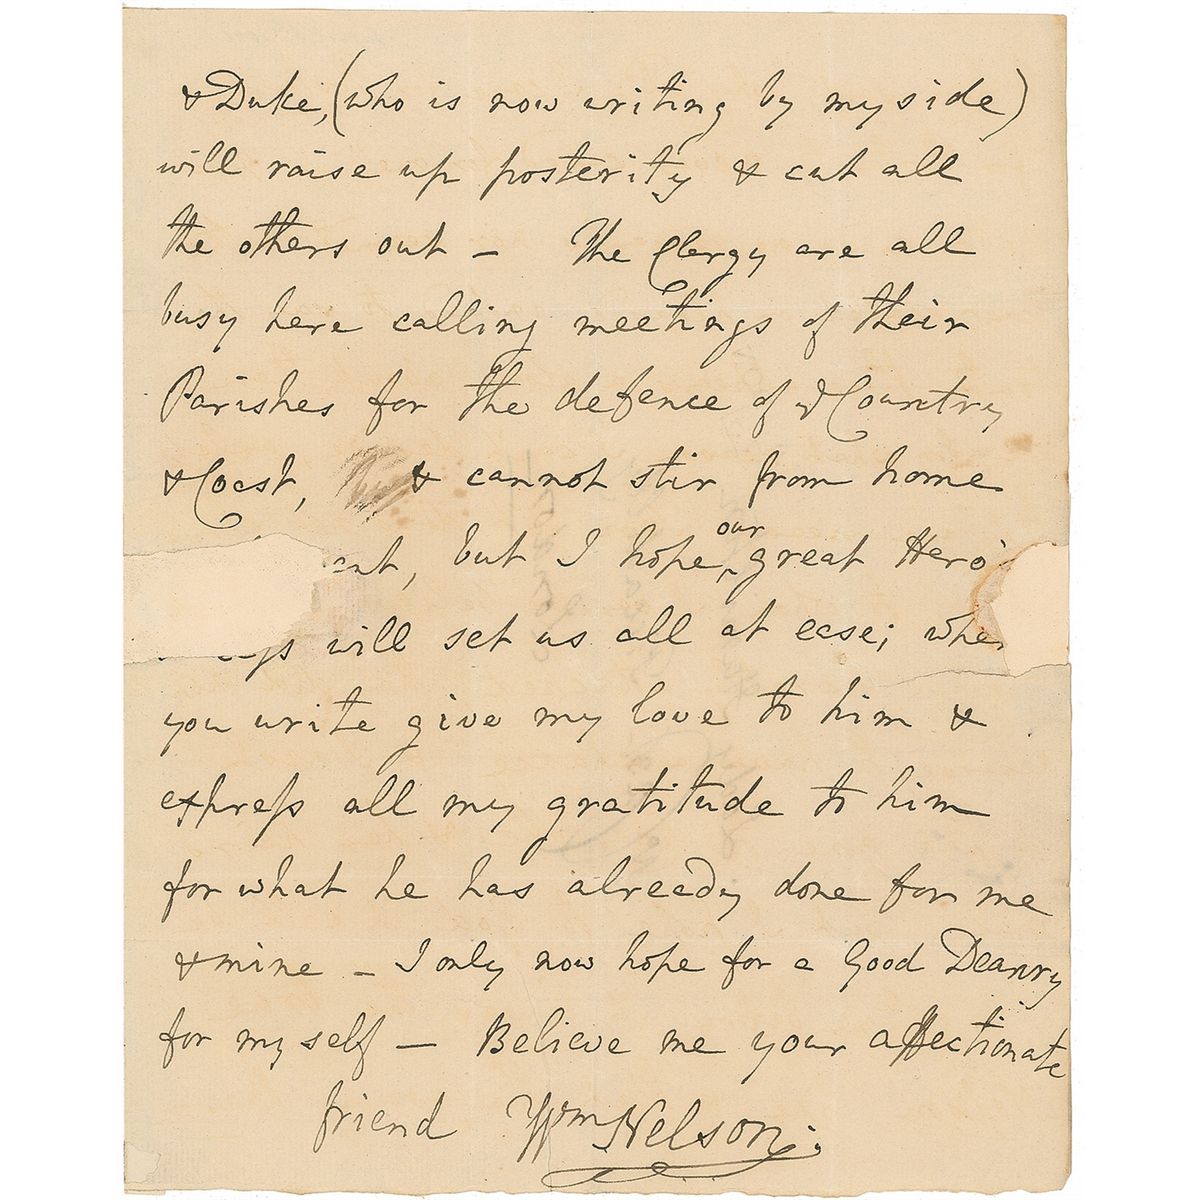 & Duke, (who is now writing by my side)
will raise up posterity & cut all
the others out - The Clergy are all
busy here calling meetings of their
Parishes for the defence of ye Country
& Coast, & cannot stir from home
but I hope our great Hero's
will set us all at ease; when
you write give my love to him &
express all my gratitude to him
for what he has already done for me
& mine - I only now hope for a Good Deanry
for myself - Believe me your affectionate
friend Wm Nelson.